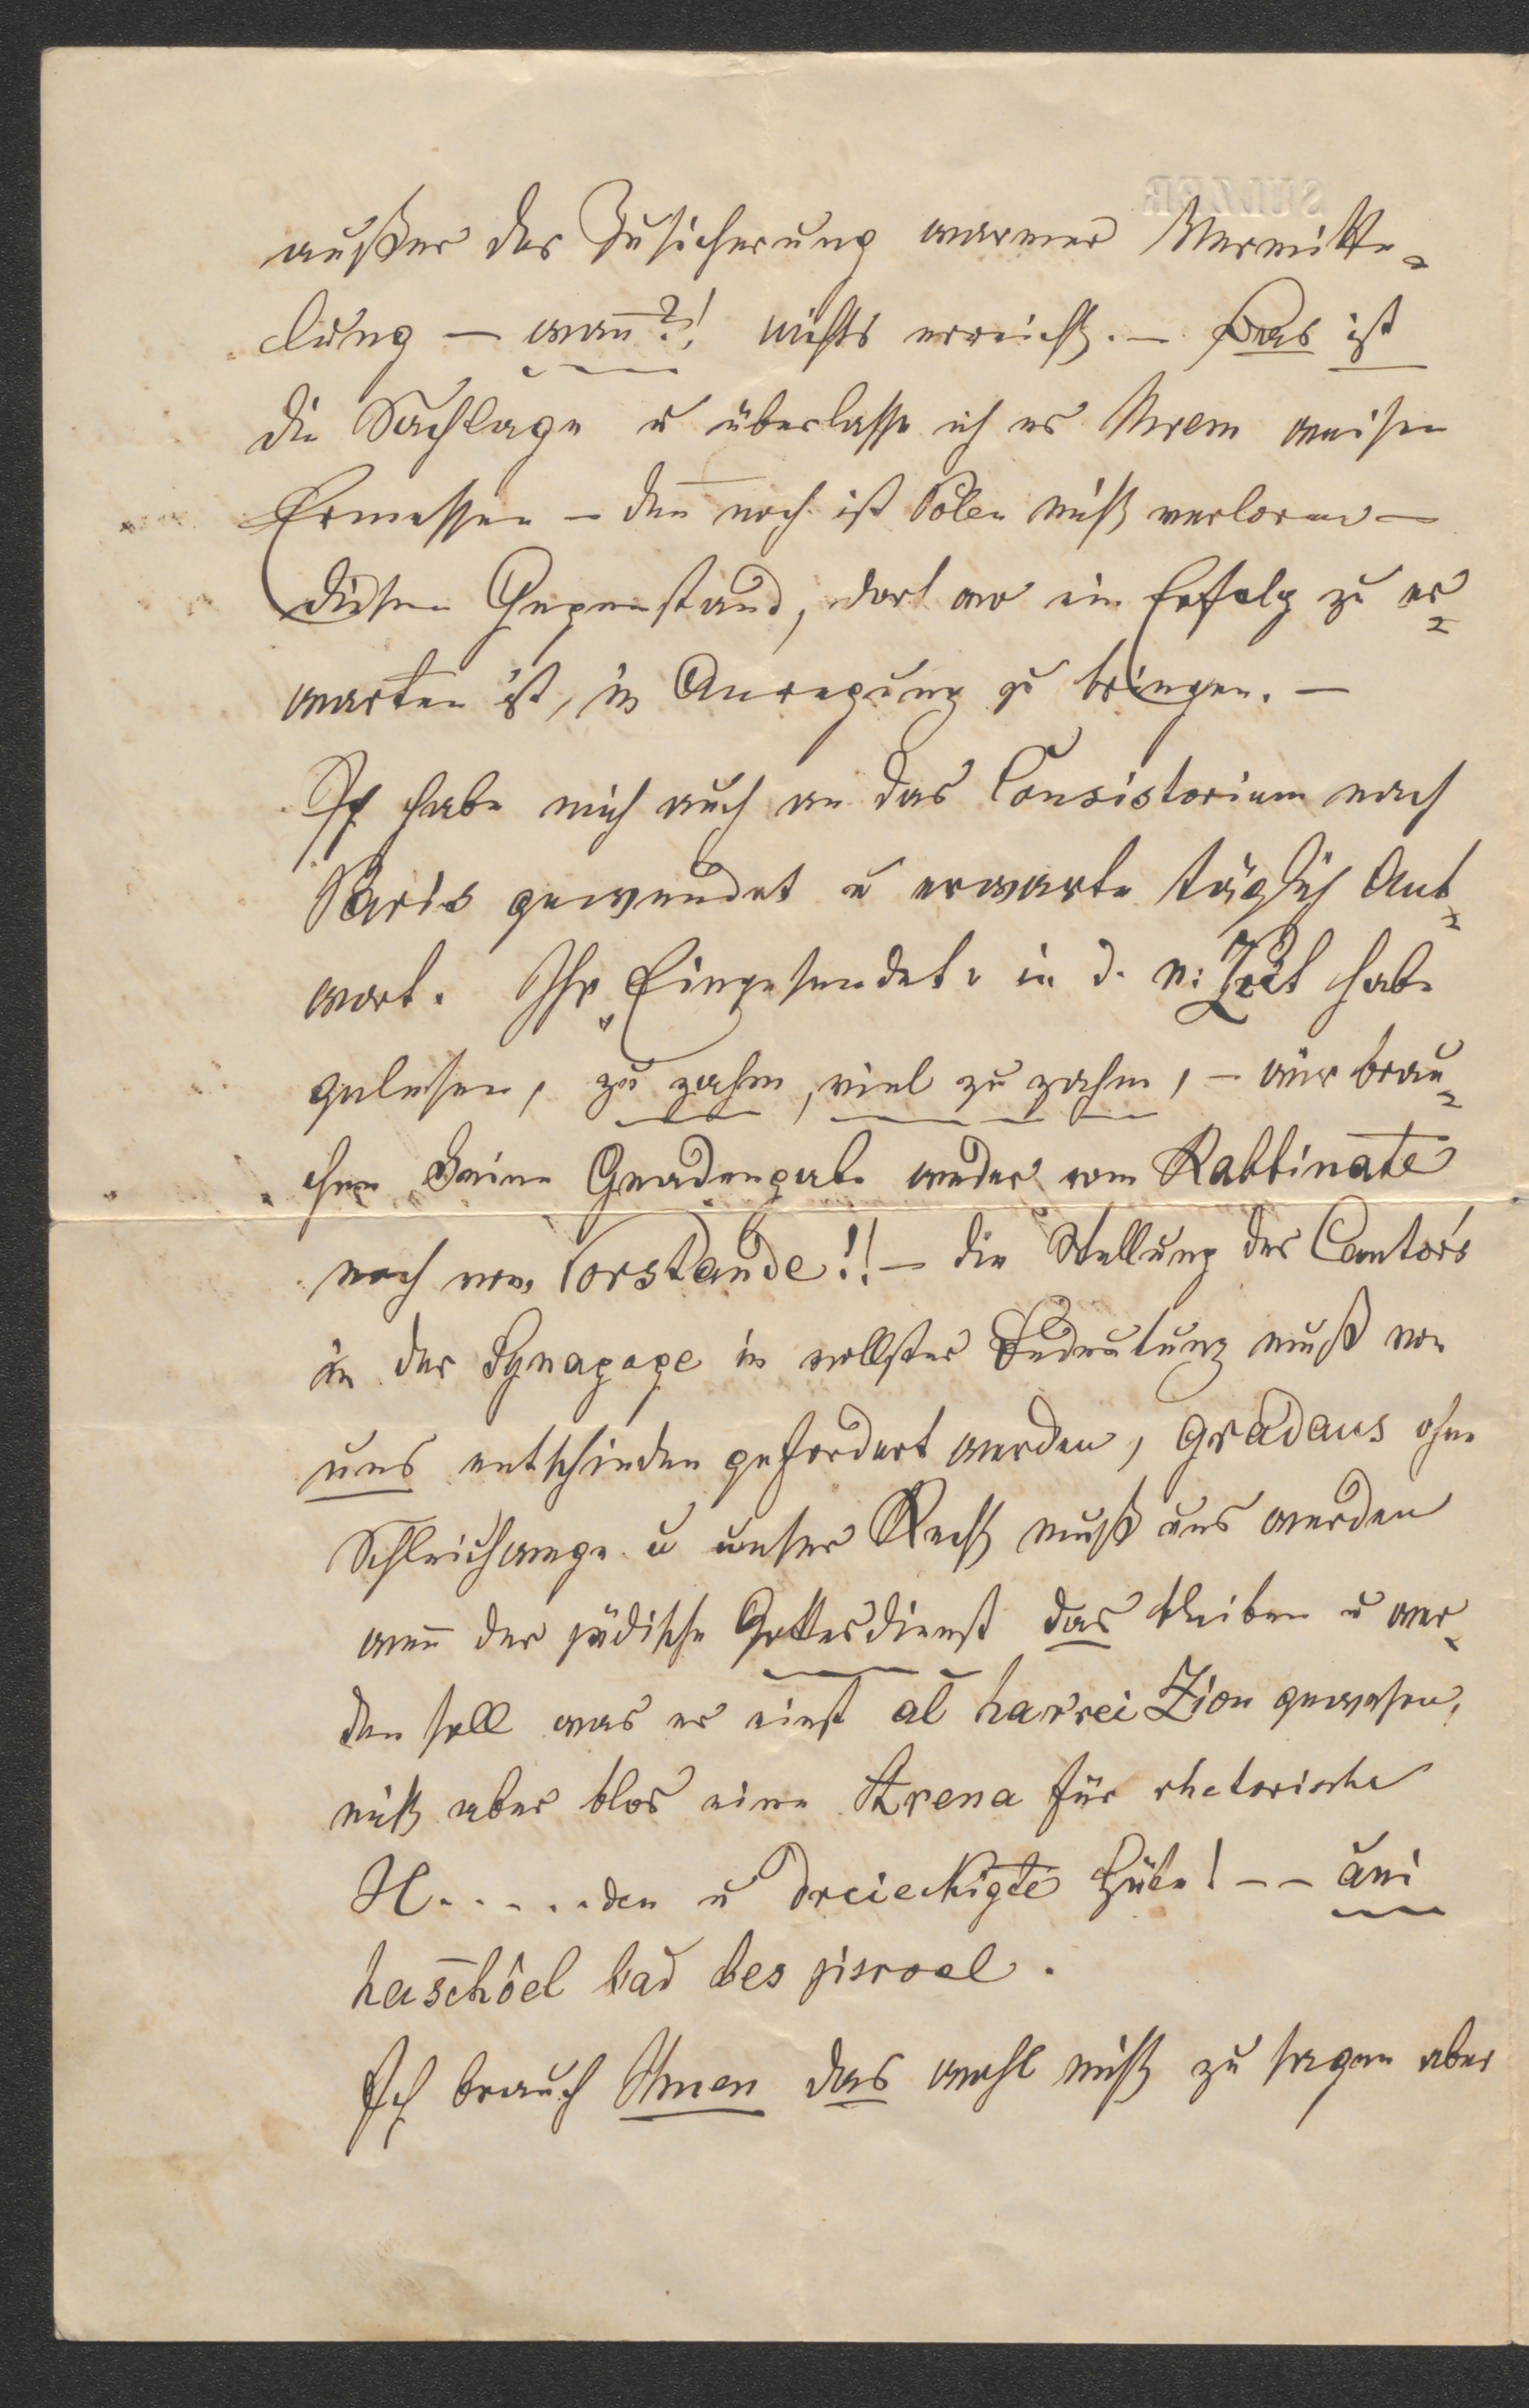 SULZER
außer der Zusicherung warmer Vermitte-
lung — wañ?! nichts erreicht. — Das ist
die Sachlage u überlasse ich es Ihrem weisen
Ermessen — deñ noch ist Polen nicht verloren —
diesen Gegenstand, dort wo ein Erfolg zu er-
warten ist, in Anregung zu bringen. —
Ich habe mich auch an das Consistorium nach
Paris gewendet u erwarte täglich Ant-
wort. Ihr „Eingesendet" in d. n: Zeit habe
gelesen, zu zahm, viel zu zahm, — wir brau-
chen keine Gnadengabe weder vom Rabbinate
noch vom Vorstande!! — die Stellung des Cantors
in der Synagoge in vollster Bedeutung muß von
uns entschieden gefordert werden, gradaus ohne
Schleichwege u unser Recht muß uns werden
weñ der jüdische Gottesdienst das bleiben u wer-
den soll was er einst al harrei Zion gewesen,
nicht aber blos eine Arena für rhetorische
H......den u dreieckigte Hüte! — — ani
haschoel bad bes jisroel.
Ich brauch Ihnen das wohl nicht zu sagen aber